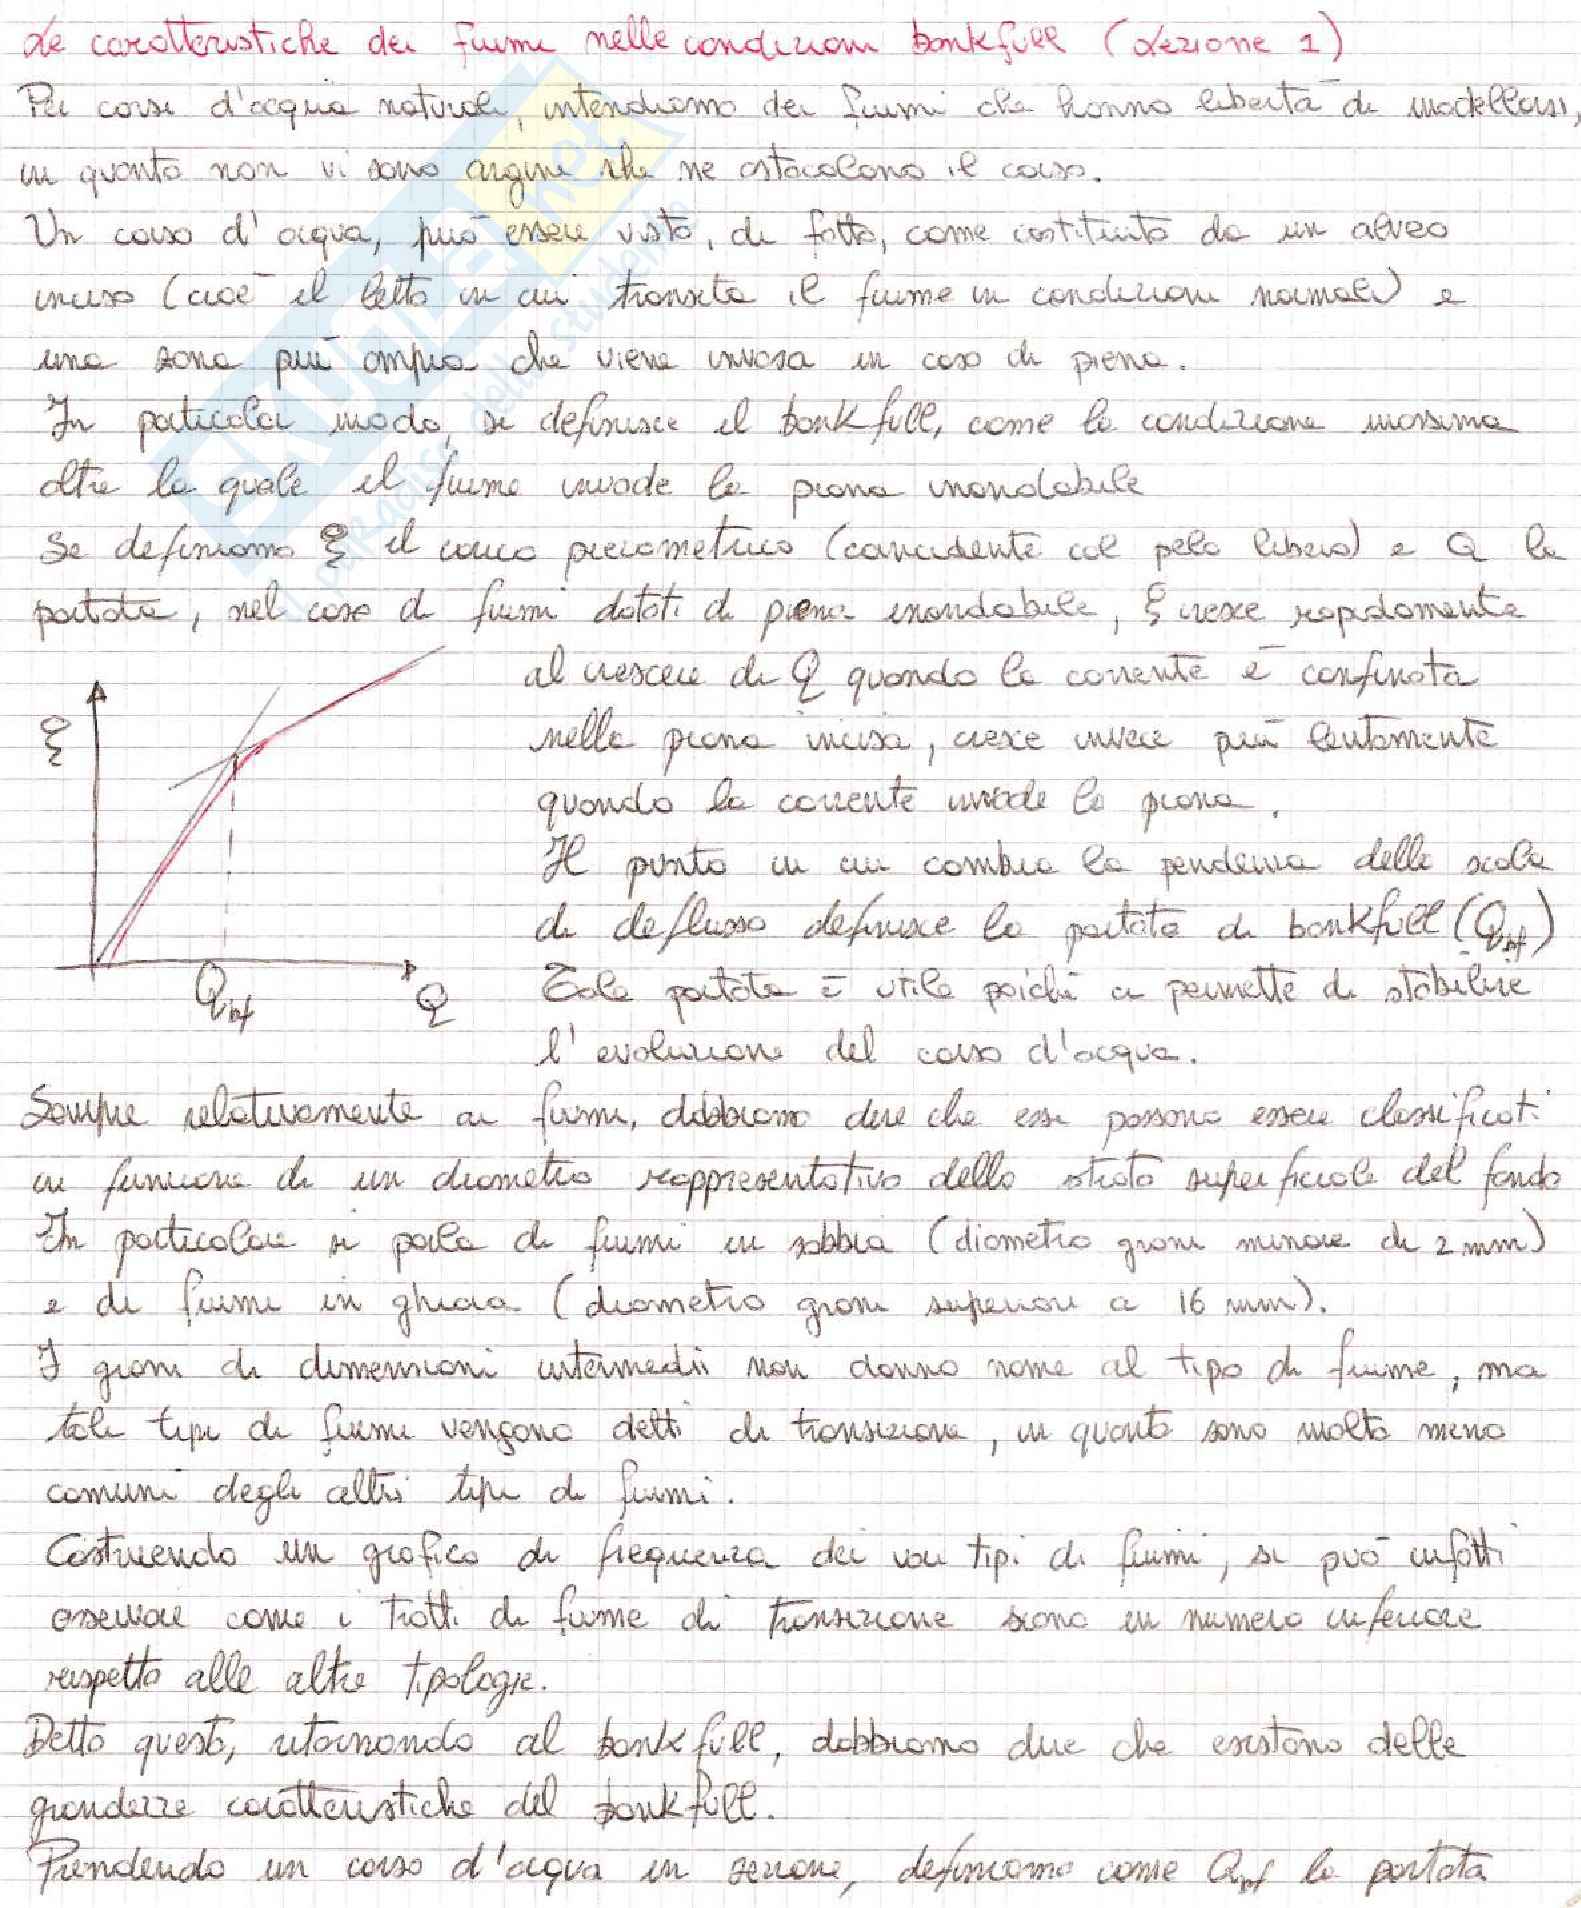 Le caratteristiche dei fiumi nelle condizioni bankfull (Lezione 1)
Per corsi d'acqua naturali, intendiamo dei fiumi che hanno libertà di modellarsi,
in quanto non vi sono argini che ne ostacolano il corso.
Un corso d'acqua, può essere visto, di fatto, come costituito da un alveo
inciso (cioè il letto in cui transita il fiume in condizioni normali) e
una zona più ampia che viene invasa in caso di piena.
In particolar modo, si definisce il bankfull, come la condizione massima
oltre la quale il fiume invade la piana inondabile
Se definiamo ξ il carico piezometrico (coincidente col pelo libero) e Q la
portata, nel caso di fiumi dotati di piana inondabile, ξ cresce rapidamente
al crescere di Q quando la corrente è confinata
nella piana incisa, cresce invece più lentamente
quando la corrente invade la piana.
Il punto in cui cambia la pendenza della scala
di deflusso definisce la portata di bankfull (Qbf)
Tale portata è utile poiché ci permette di stabilire
l'evoluzione del corso d'acqua.
ξ
Qbf
Q
Sempre relativamente ai fiumi, dobbiamo dire che essi possono essere classificati
in funzione di un diametro rappresentativo dello strato superficiale del fondo
In particolare si parla di fiumi in sabbia (diametro grani minore di 2 mm)
e di fiumi in ghiaia (diametro grani superiori a 16 mm).
I grani di dimensioni intermedii non danno nome al tipo di fiume, ma
tali tipi di fiumi vengono detti di transizione, in quanto sono molto meno
comuni degli altri tipi di fiumi.
Costruendo un grafico di frequenza dei vari tipi di fiumi, si può infatti
osservare come i tratti di fiume di transizione siano in numero inferiore
rispetto alle altre tipologie.
Detto questo, ritornando al bankfull, dobbiamo dire che esistono delle
grandezze caratteristiche del bankfull.
Prendendo un corso d'acqua in sezione, definiamo come Qbf la portata
SKUOLA.net
il paradiso dello studente